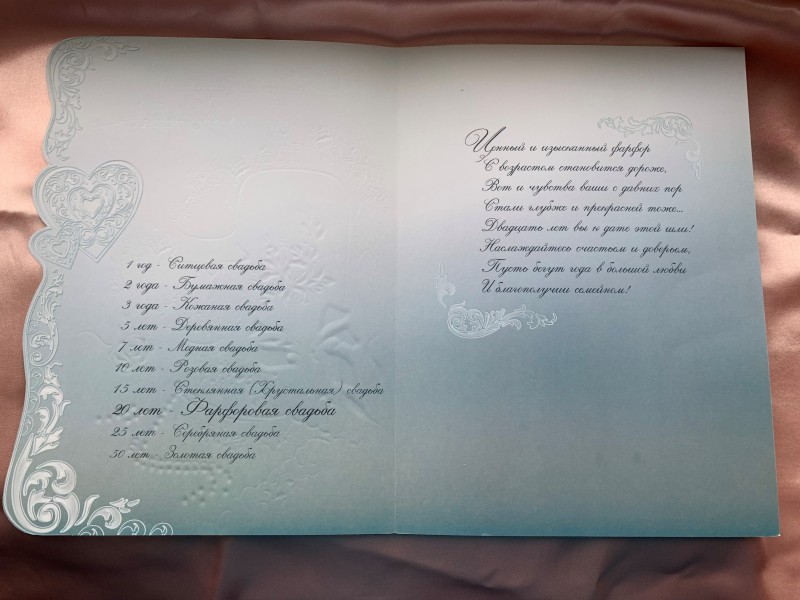 1 год - Ситцевая свадьба
2 года - Бумажная свадьба
3 года - Кожаная свадьба
5 лет - Деревянная свадьба
7 лет - Медная свадьба
10 лет - Розовая свадьба
15 лет - Стеклянная (Хрустальная) свадьба
20 лет - Фарфоровая свадьба
25 лет - Серебряная свадьба
50 лет - Золотая свадьба
Ценный и изысканный фарфор
С возрастом становится дороже,
Вот и чувства ваши с давних пор
Стали глубже и прекрасней тоже...
Двадцать лет вы к дате этой шли!
Наслаждайтесь счастьем и доверьем,
Пусть бегут года в большой любви
И благополучии семейном!